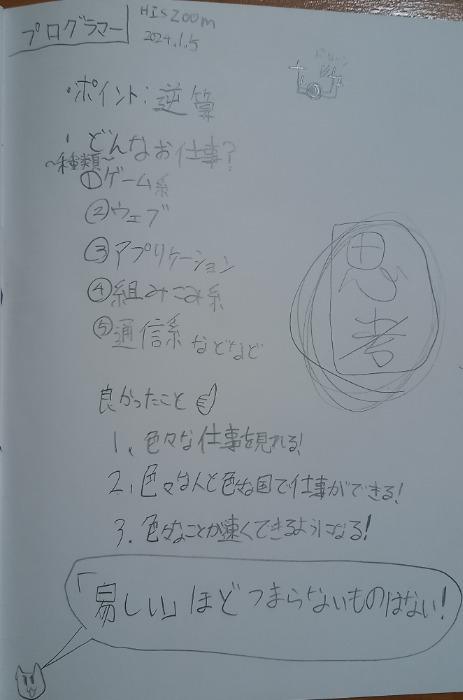 プログラマー
HIS ZOOM
2024.1.5
・ポイント:逆算
・どんなお仕事?
~種類~
①ゲーム系
②ウェブ
③アプリケーション
④組みこみ系
⑤通信系 などなど
思考
良かったこと
1、色々な仕事を見れる!
2、色々な人と色々な国で仕事ができる!
3、色々なことが速くできるようになる!
「易しい」ほどつまらないものはない!